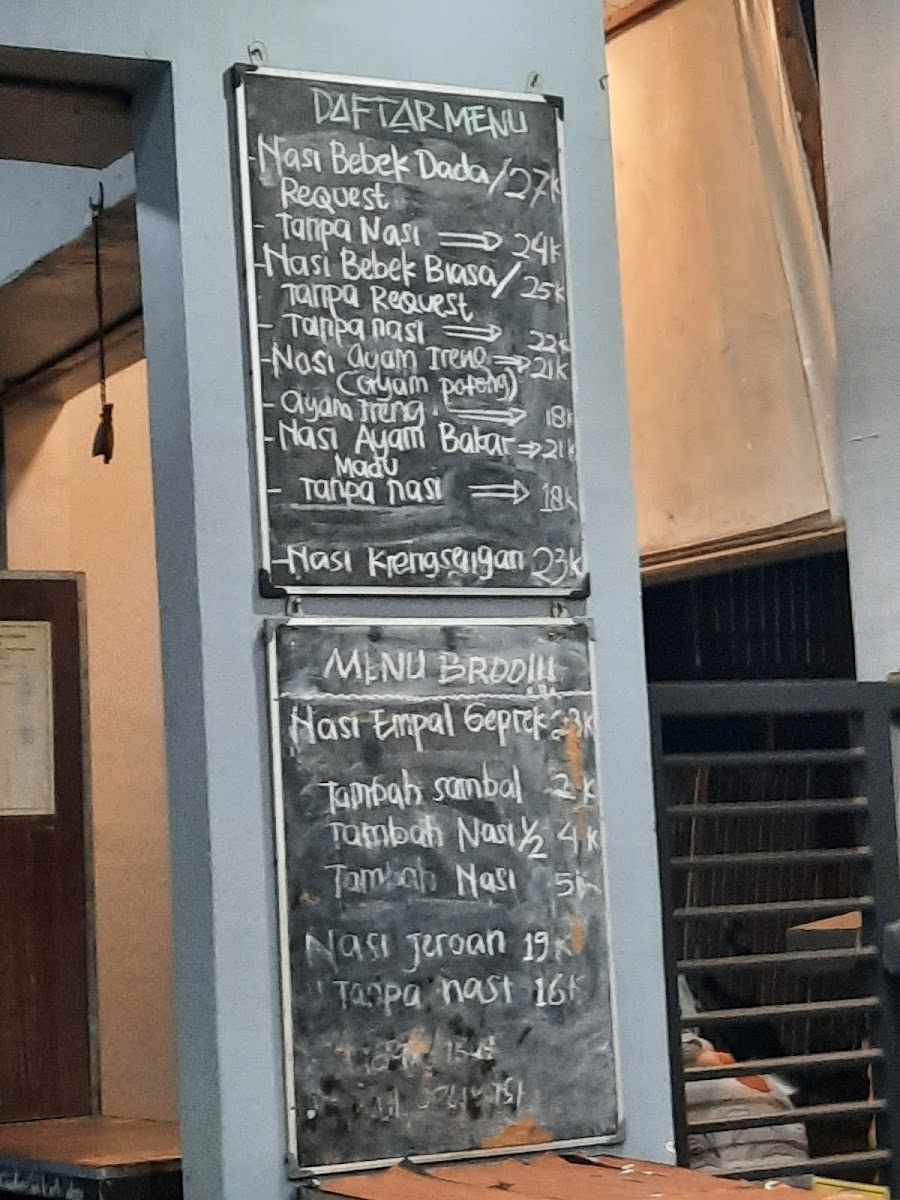 DAFTAR MENU
- Nasi Bebek Dada / 27K
Request
- Tanpa Nasi ⇒ 24K
- Nasi Bebek Biasa / 25K
Tanpa Request
- Tanpa nasi ⇒ 22K
- Nasi Ayam Ireng ⇒ 21K
(Ayam potong)
- Ayam Ireng ⇒ 18K
- Nasi Ayam Bakar ⇒ 21K
Madu
- Tanpa nasi ⇒ 18K
- Nasi Krengsengan 23K
MENU BROO!!!
Nasi Empal Geprek 23K
Tambah sambal 2K
Tambah Nasi 1/2 4K
Tambah Nasi 5K
Nasi jeroan 19K
Tanpa nasi 16K